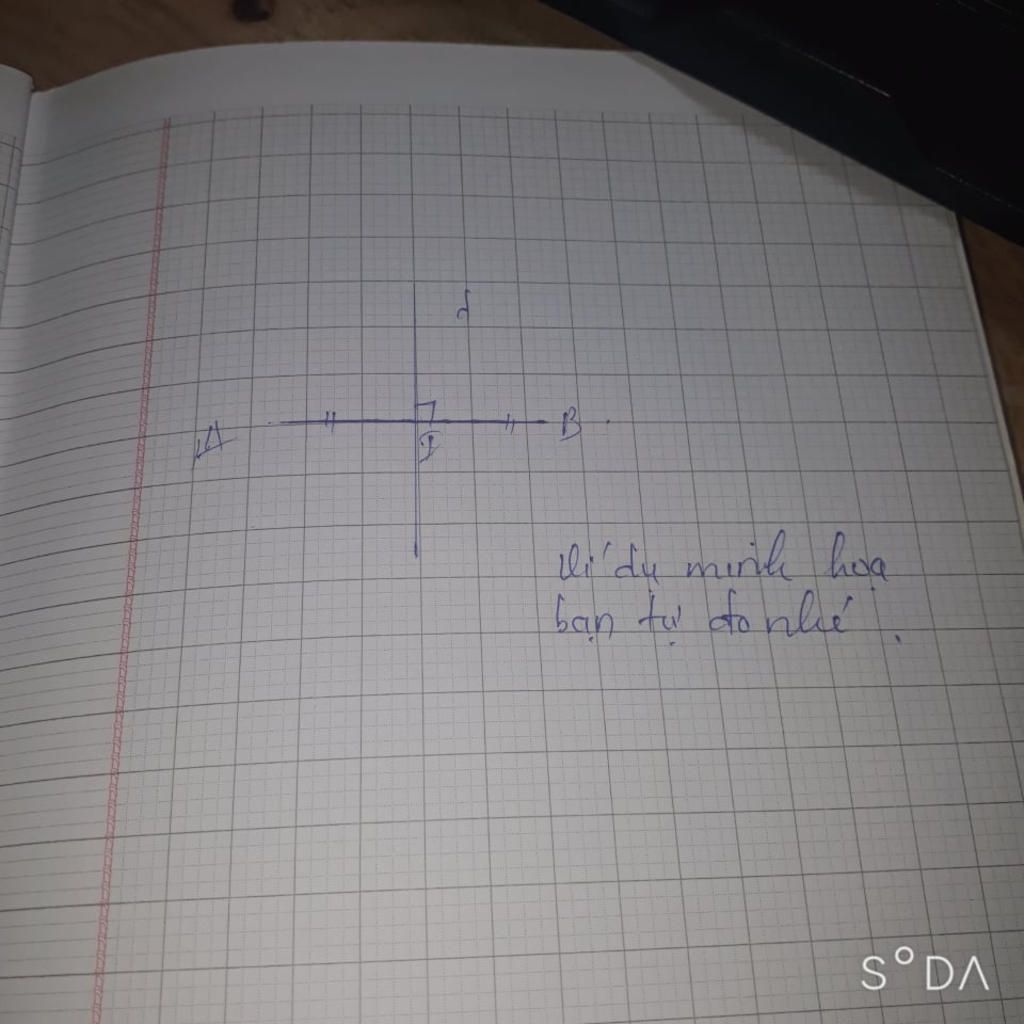 d
A
B
I
Ví dụ minh hoạ
bạn tự đo nhé.
S°DA